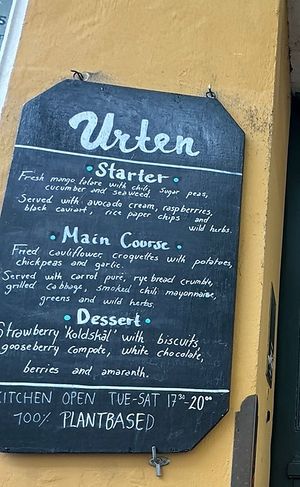 Urten
Starter
Fresh mango tatare with chili, sugar peas,
cucumber and seaweed.
Served with avocado cream, raspberries,
black caviart, rice paper chips and
wild herbs.
Main Course
Fried cauliflower croquettes with potatoes,
chickpeas and garlic.
Served with carrot puré, rye bread crumble,
grilled cabbage, smoked chili mayonnaise,
greens and wild herbs.
Dessert
Strawberry 'Koldskål' with biscuits,
gooseberry compote, white chocolate,
berries and amaranth.
KITCHEN OPEN TUE-SAT 17³⁰-20⁰⁰
100% PLANTBASED